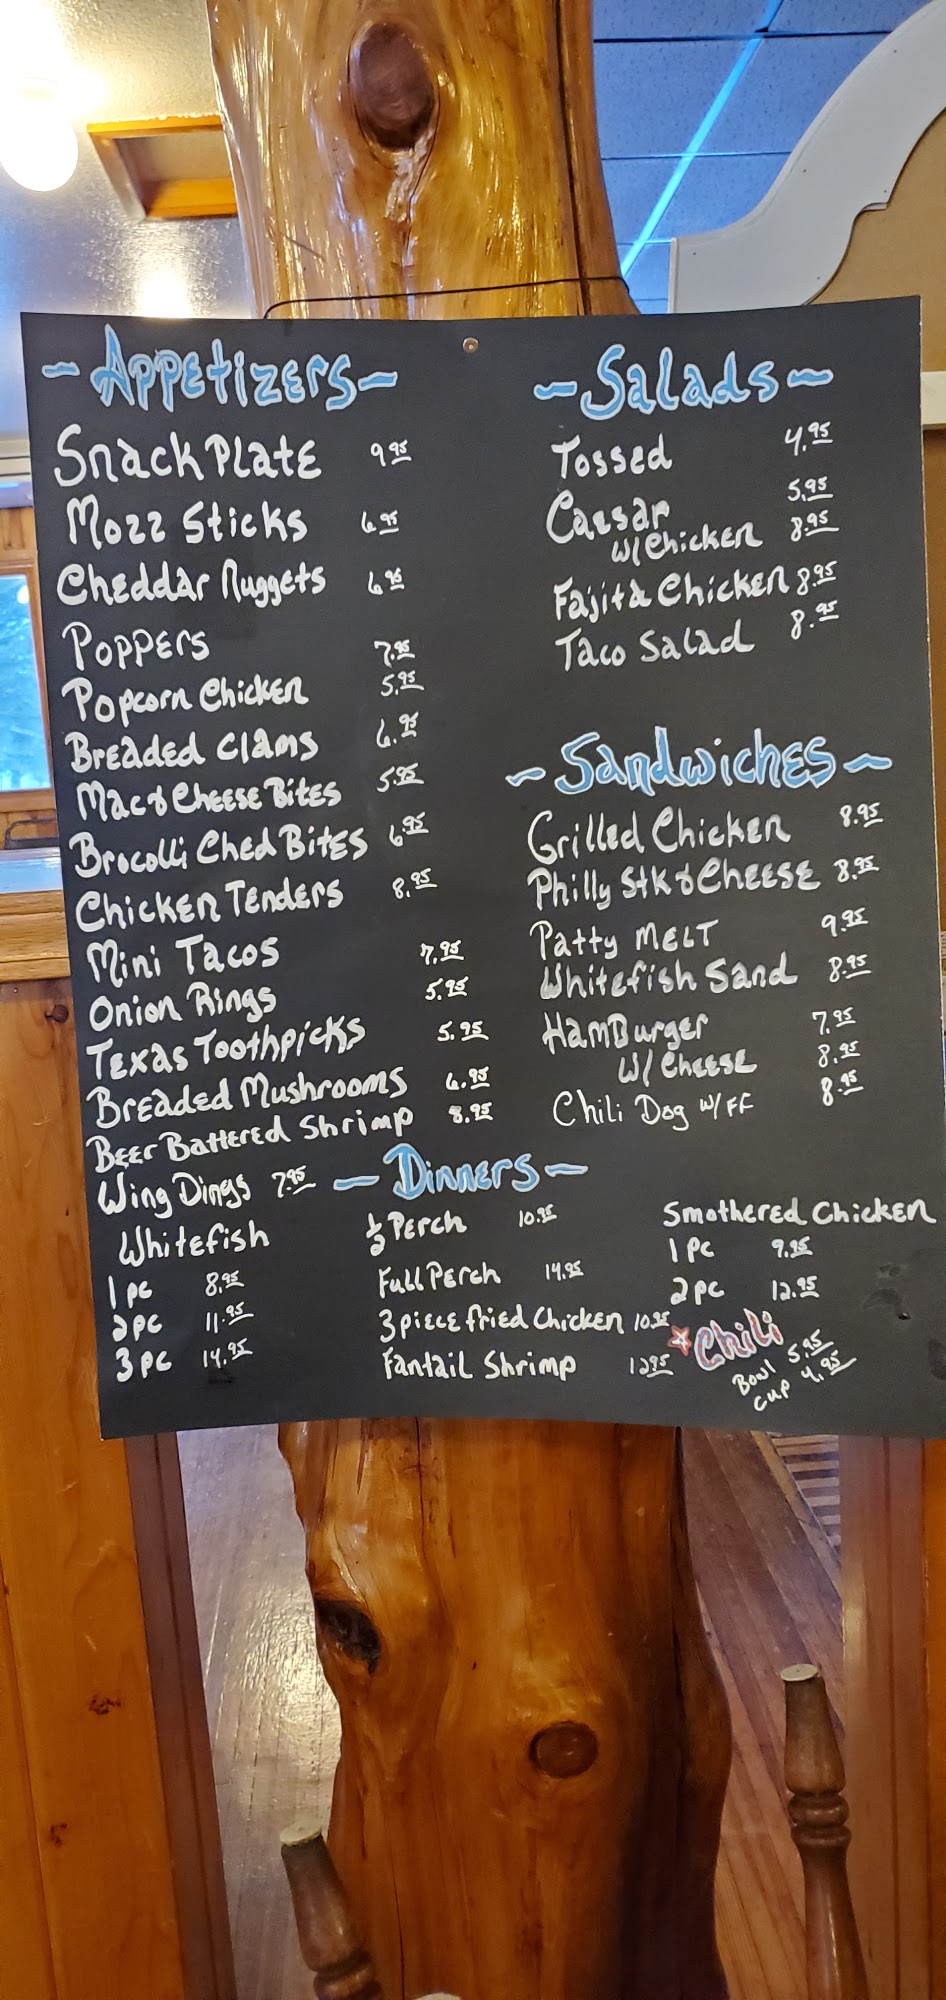 ~Appetizers~
Snack Plate 9.95
Mozz Sticks 6.95
Cheddar Nuggets 6.95
Poppers 7.95
Popcorn Chicken 5.95
Breaded Clams 6.95
Mac & Cheese Bites 5.95
Brocolli Ched Bites 6.95
Chicken Tenders 8.95
Mini Tacos 7.95
Onion Rings 5.95
Texas Toothpicks 5.95
Breaded Mushrooms 6.95
Beer Battered Shrimp 8.95
Wing Dings 7.95
~Salads~
Tossed 4.95
Caesar 5.95
w/ Chicken 8.95
Fajita Chicken 8.95
Taco Salad 8.95
~Sandwiches~
Grilled Chicken 8.95
Philly Stk & Cheese 8.95
Patty Melt 9.95
Whitefish Sand 8.95
HamBurger 7.95
w/ Cheese 8.95
Chili Dog w/ FF 8.95
~Dinners~
Whitefish
1 pc 8.95
2 pc 11.95
3 pc 14.95
1/2 Perch 10.95
Full Perch 14.95
3 piece fried Chicken 10.95
Fantail Shrimp 12.95
Smothered Chicken
1 pc 9.95
2 pc 12.95
Chili
Bowl 5.95
Cup 4.95